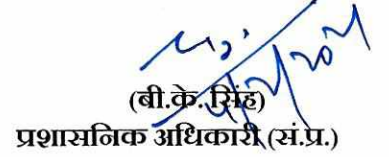 (बी.के. सिंह)
प्रशासनिक अधिकारी (सं.प्र.)